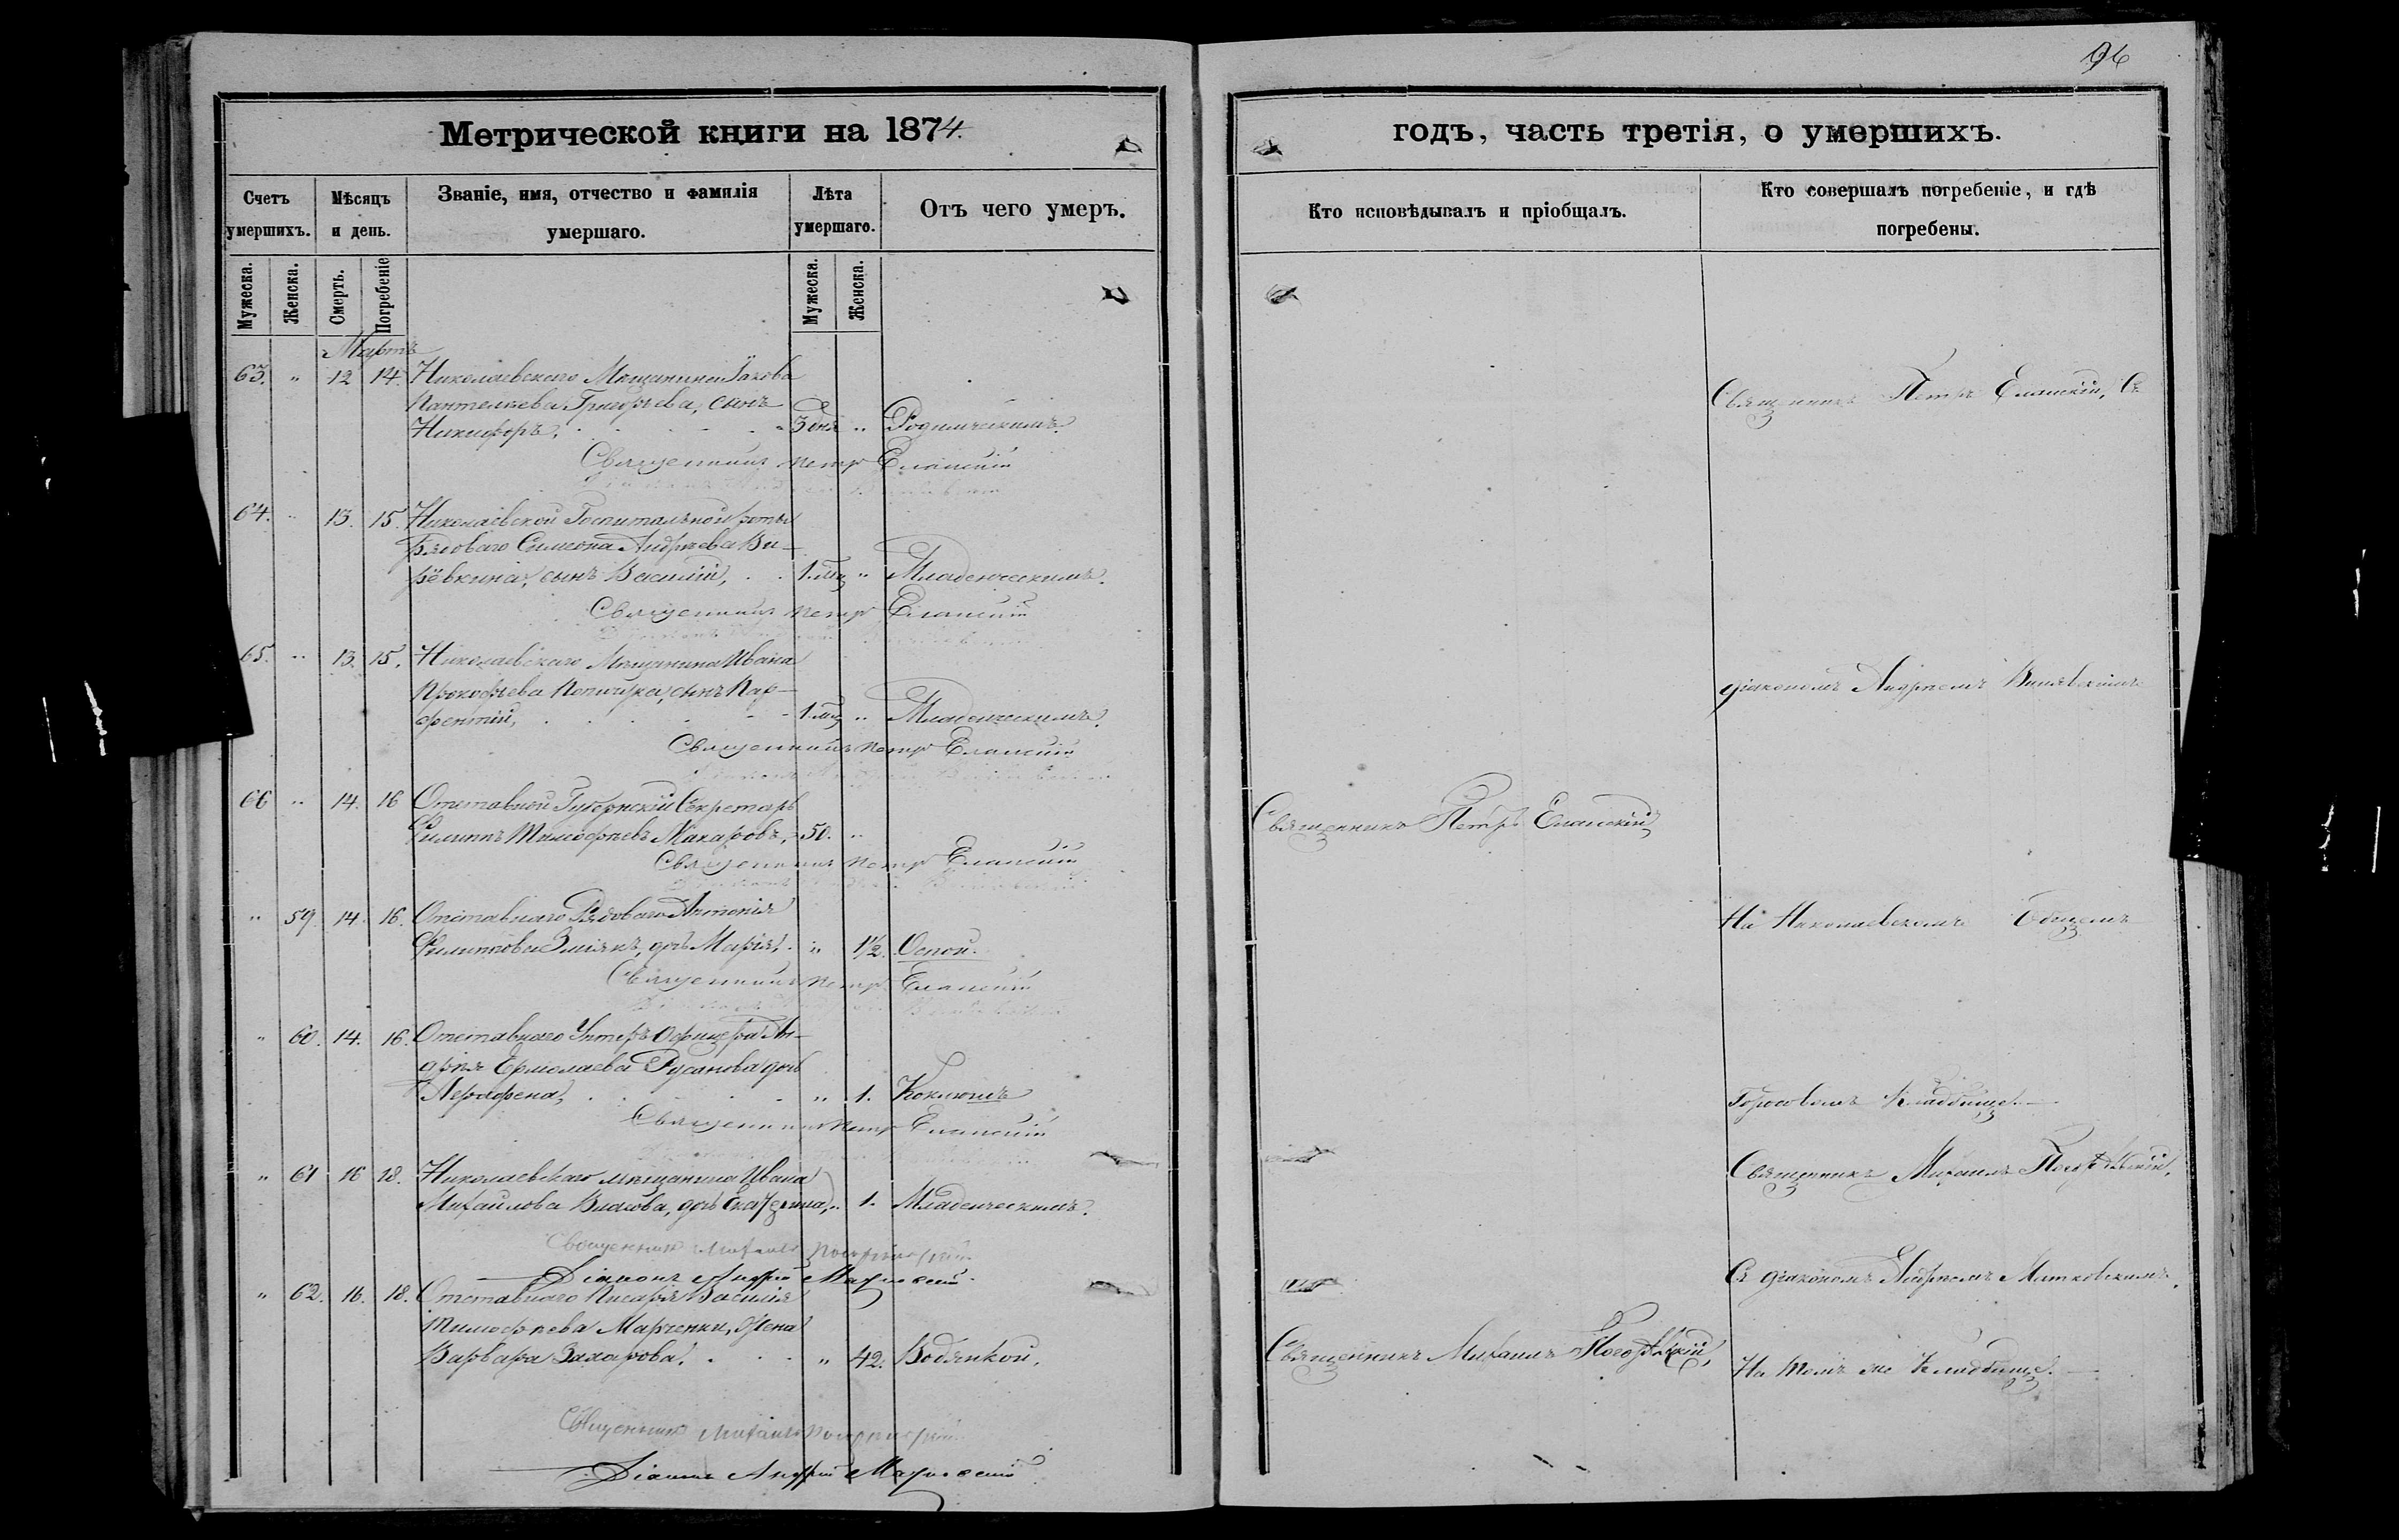 96
Метрической книги на 1874.
годъ, часть третія, о умершихъ.
Счетъ умершихъ.
Мѣсяцъ и день.
Званіе, имя, отчество и фамилія умершаго.
Лѣта умершаго.
Отъ чего умеръ.
Кто исповѣдывалъ и пріобщалъ.
Кто совершалъ погребеніе, и гдѣ погребены.
Мужеска. Женска. Смерть. Погребеніе Мужеска. Женска.
Мартъ
63. " 12 14. Николаевскаго Мѣщанина Іакова
Пантелеева Григорьева, сынъ
Никифоръ, 3 дня " Родимческимъ.
Священникъ Петръ Еланскій
64. " 13. 15. Николаевской Госпитальной роты
Рядоваго Симеона Андреева Ви-
рёвкина, сынъ Василій, 1. мц " Младенческимъ.
Священникъ Петръ Еланскій
65. " 13. 15. Николаевскаго Мѣщанина Ивана
Прокофьева сынъ Пар-
фентій, 1. мц " Младенческимъ.
Священникъ Петръ Еланскій
66 " 14. 16 Отставной Губернскій Секретарь
Филиппъ Тимофеевъ Макаровъ, 50. "
Священникъ Петръ Еланскій
" 59. 14. 16. Отставнаго Рядоваго Антонія
Филиппова дочь Марія, " 1½. Оспой.
Священникъ Петръ Еланскій
" 60. 14. 16. Отставнаго Унтеръ Офицера Ан-
дрея Ермолаева Русанова дочь
Аграфена, " 1. Коклюшъ
Священникъ Петръ Еланскій
" 61 16 18. Николаевскаго мѣщанина Ивана
Михайлова Власова, дочь Екатерина, " 1. Младенческимъ.
Священникъ Михаилъ
Діаконъ Андрей
" 62. 16. 18. Отставнаго Писаря Василія
Тимофеева Марченки, жена
Варвара Захарова. " 42. Водянкой.
Священникъ Михаилъ
Діаконъ Андрей
Священникъ Петръ Еланскій
Священникъ Михаилъ
Священникъ Петръ Еланскій, Съ
діакономъ Андреемъ
На Николаевскомъ Общемъ
Городовомъ Кладбище.
Священникъ Михаилъ
Съ діакономъ Андреемъ
На томъ же Кладбище.